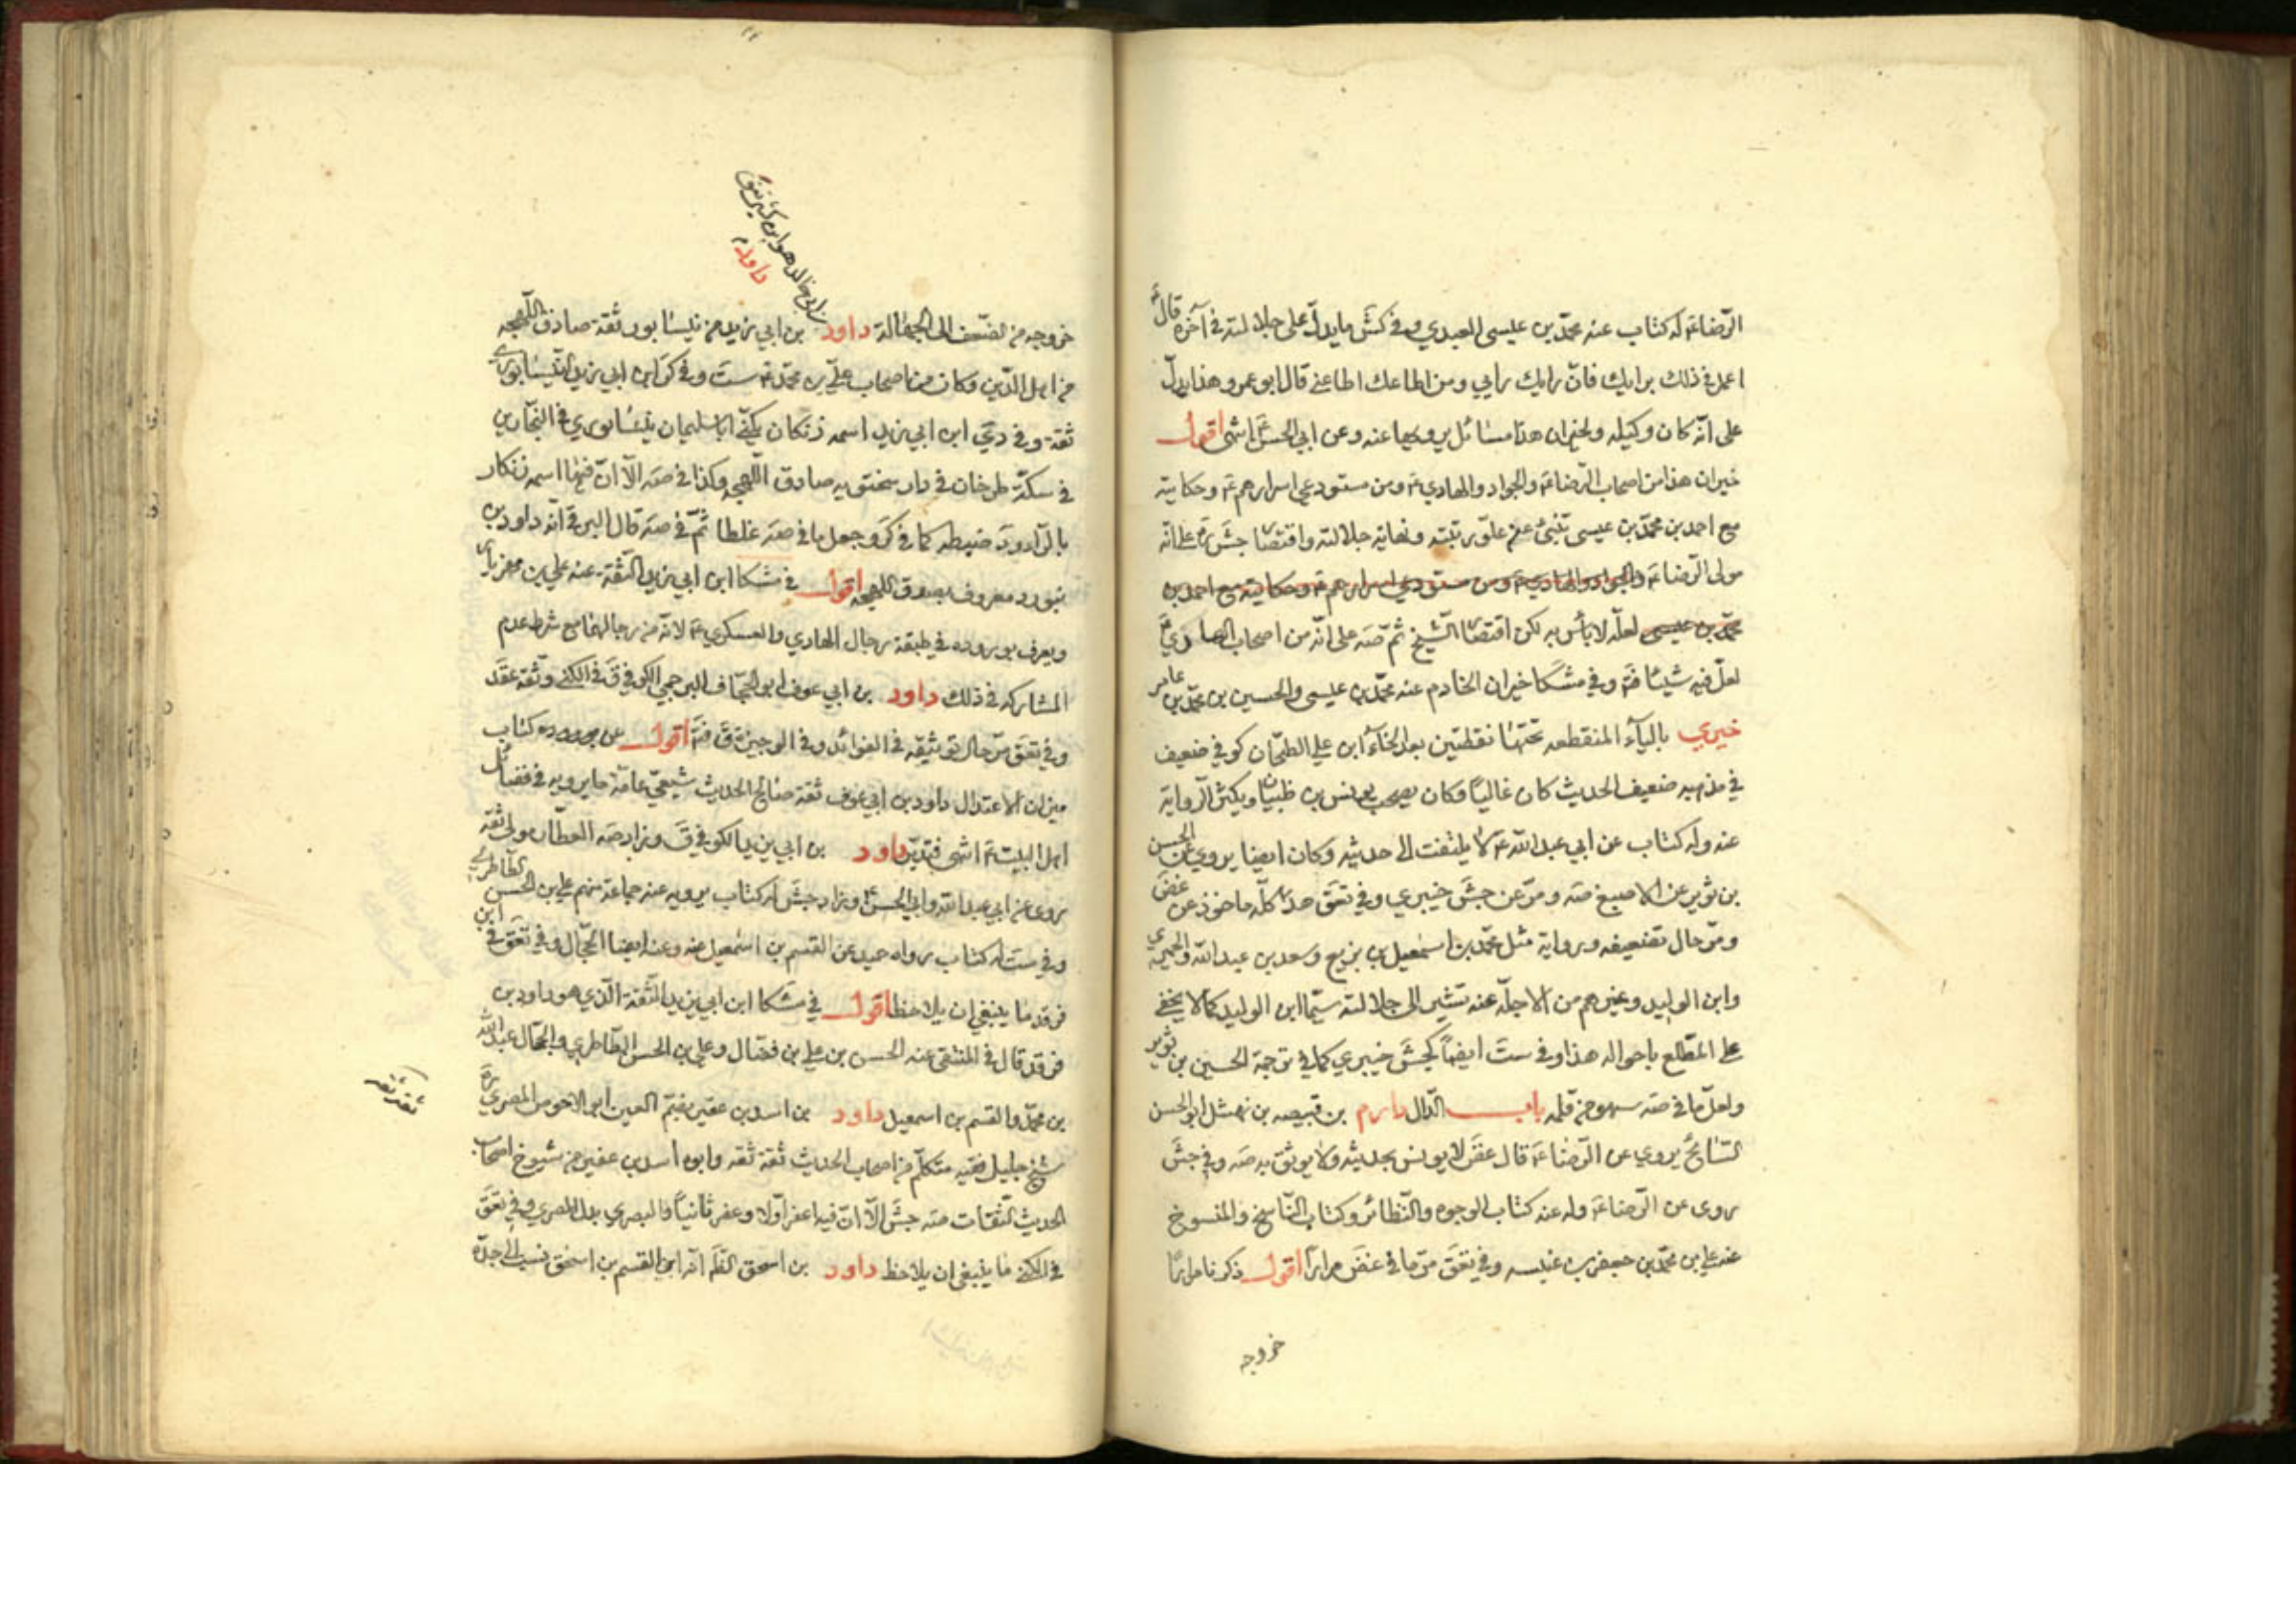 الرضاء له كتاب عنه محمد بن عيسى العبيدي وفي كش ما يدل على جلالته في آخره قال ع
اعمل في ذلك برايك فان رايك رايي ومن اطاعك اطاعني قال ابو عمرو هذا يدل
على انه كان وكيله ولخيران هذا مسائل يرويها عنه وعن ابي الحسن ع انتهى اقول
خيران هذا من اصحاب الرضاء والجواد والهادي ع ومن مستودعي اسرارهم ع وحكايته
مع احمد بن محمد بن عيسى تنبئ عن علو رتبته ونهاية جلالته واقتصار جش على انه
مولى الرضاء والجواد والهادي ع ومن مستودعي اسرارهم ع وحكايته مع احمد بن
محمد بن عيسى لعله لا باس به لكن اقتصار الشيخ ثم صه على انه من اصحاب الهادي ع
لعل فيه شيئا فت وفي مشكا خيران الخادم عنه محمد بن عيسى والحسين بن محمد بن عامر
خيبري بالياء المنقطعه تحتها نقطتين بعد الخاء ابن علي الطحان كوفي ضعيف
في مذهبه ضعيف الحديث كان غاليا وكان يصحب يونس بن ظبيان ويكثر الرواية
عنه وله كتاب عن ابي عبد الله ع لا يلتفت الى حديثه وكان ايضا يروي عن الحسين
بن ثوير عن الاصبغ صه ومر عن جش خيبري وفي تعق هذا كله ماخوذ عن غض
ومر حال تضعيفه ورواية مثل محمد بن اسمعيل بن بزيع وسعد بن عبد الله والحميري
وابن الوليد وغيرهم من الاجلة عنه تشير الى جلالته سيما ابن الوليد كما لا يخفى
على المطلع باحواله هذا وفي ست ايضا كجش خيبري كما في ترجمة الحسين بن ثوير
ولعل ما في صه سهو من قلمه باب الدال دارم بن قبيصه بن نهشل ابو الحسن
السائح يروي عن الرضاء قال غض لا يونس بحديثه ولا يوثق به صه وفي جش
روى عن الرضاء وله عنه كتاب الوجوه والنظائر وكتاب الناسخ والمنسوخ
عنه علي بن محمد بن جعفر بن عنبسه وفي تعق مر ما في غض مرارا اقول ذكرنا مرارا
خروجه
ابي خالد هو ابن كثير
داود
خروجه من لضعف الى الجهالة داود بن ابي زيد من نيسابور ثقة صادق اللهجه
من اهل الدين وكان من اصحاب علي بن محمد ع ست وفي كر ابن ابي زيد النيسابوري
ثقة وفي دي ابن ابي زيد اسمه زنكان يكنى ابا سليمان نيسابوري في النجارين
في سكة طرخان في دار سختويه صادق اللهجه وكذا في صه الا ان فيها اسمه زنكار
بالراء ود ضبطه كما في كر وجعل ما في صه غلطا ثم في صه قال البرقي انه داود بن
بنورد معروف بصدق اللهجه اقول في مشكا ابن ابي زيد الثقة عنه علي بن مهزيار
ويعرف بوروده في طبقة رجال الهادي والعسكري ع لانه من رجالهما مع شرط عدم
المشاركه في ذلك داود بن ابي عوف ابو الجحاف البرجمي الكوفي ق في الكنى وثقه عقد
وفي تعق مر حال توثيقه في الفوائد وفي الوجيزة ق فت اقول كتاب
ميزان الاعتدال داود بن ابي عوف ثقة صالح الحديث شيعي عامة ما يرويه في فضائل
اهل البيت ع انتهى فتدبر داود بن ابي يزيد الكوفي ق وزاد صه العطار مولى ثقه
روى عن ابي عبد الله وابي الحسن ع وزاد جش له كتاب يرويه عنه جماعة منهم علي بن الحسن الطاطري
وفي ست له كتاب رواه حميد عن القسم بن اسمعيل عنه وعنه ايضا الحجال وفي تعق في ابن
فرقد ما ينبغي ان يلاحظ اقول في مشكا ابن ابي يزيد الثقة الذي هو داود بن
فرقد قال في المنتقى عنه الحسن بن علي بن فضال وعلي بن الحسن الطاطري والحجال عبد الله
بن محمد والقسم بن اسمعيل داود بن اسد بن عفير بضم العين ابو الاحوص المصري ره
شيخ جليل فقيه متكلم من اصحاب الحديث ثقة ثقه وابوه اسد بن عفير من شيوخ اصحاب
الحديث الثقات صه جش الا ان فيه اعفر اولا وعفر ثانيا والبصري بدل المصري وفي تعق
في الكنى ما ينبغي ان يلاحظ داود بن اسحق الظ انه ابن القسم بن اسحق نسب الى جده
ثقة ثقه